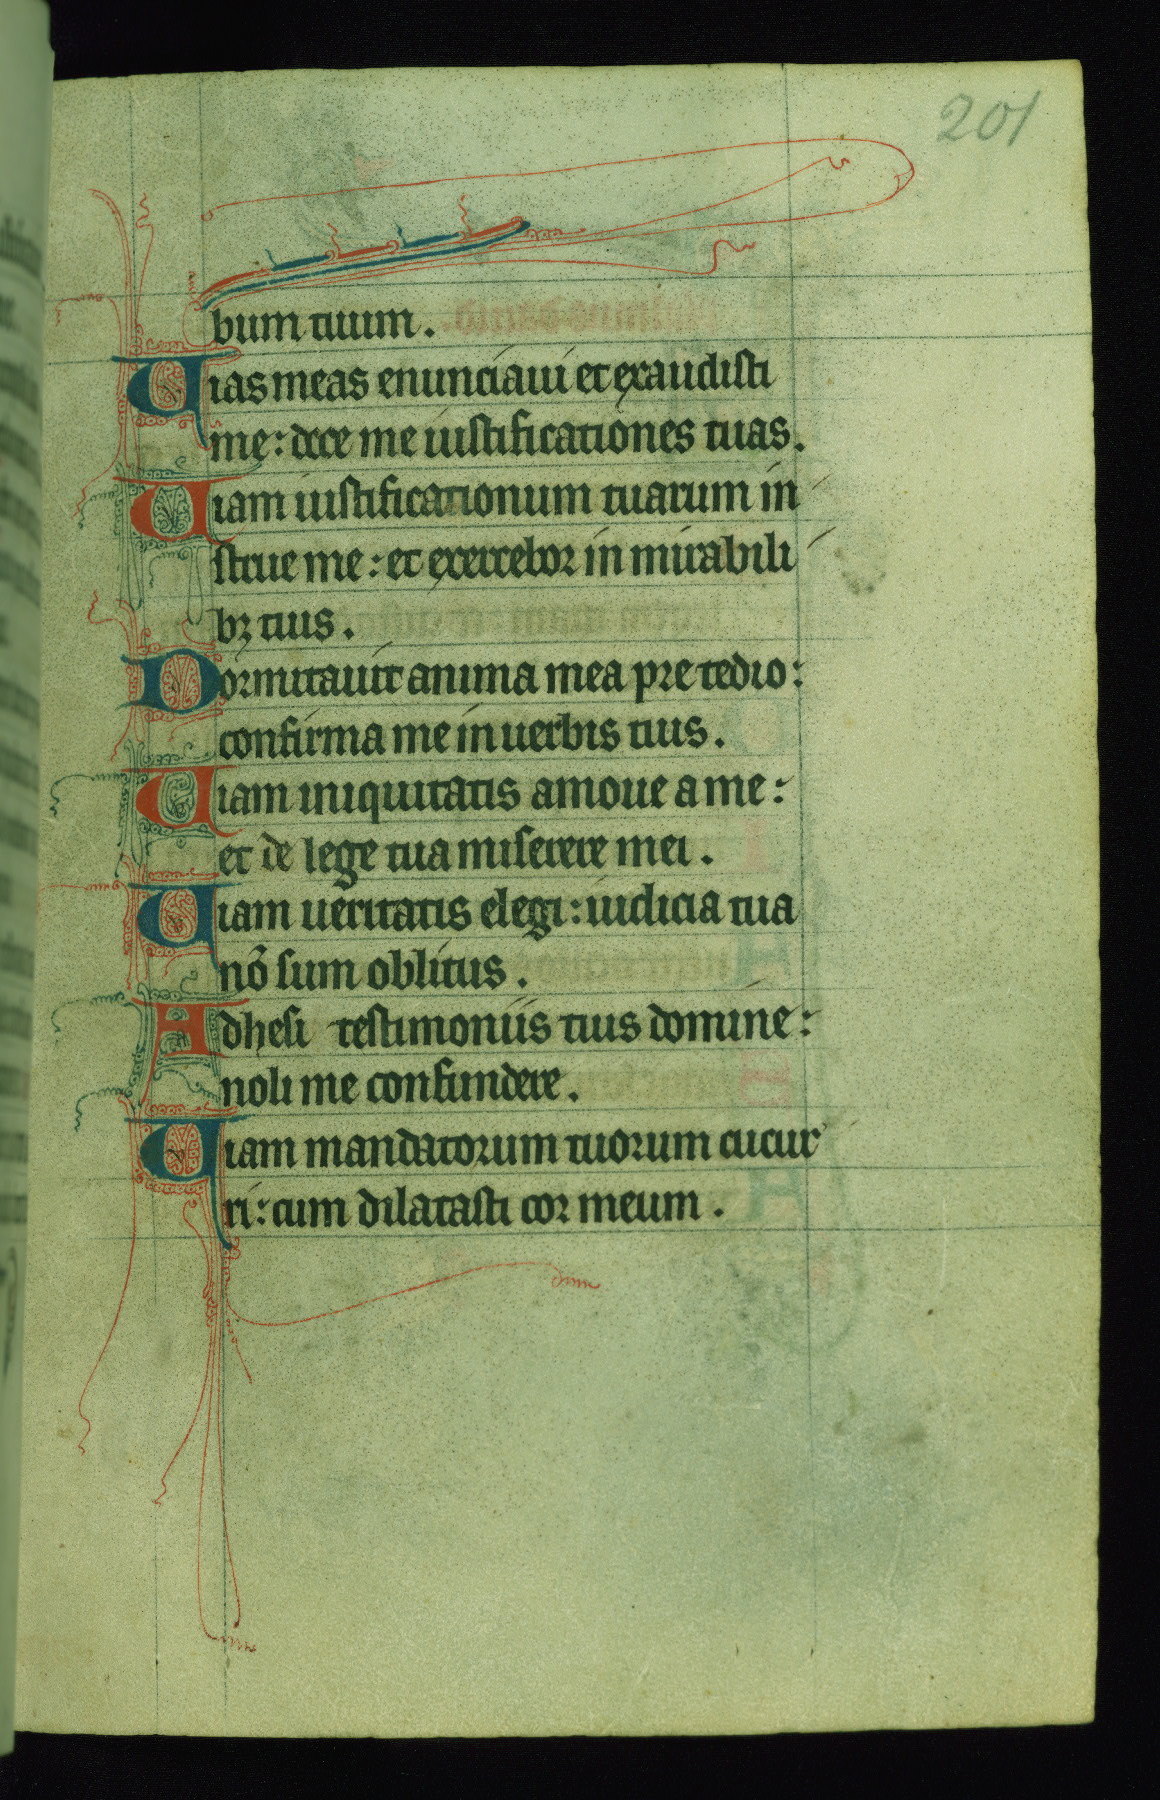 201
bum tuum.
Uias meas enunciaui et exaudisti
me: doce me iustificationes tuas.
Uiam iustificationum tuarum in
strue me: et exercebor in mirabili
bꝫ tuis.
Dormitauit anima mea pre tedio:
confirma me in uerbis tuis.
Uiam iniquitatis amoue a me:
et de lege tua miserere mei.
Uiam ueritatis elegi: iudicia tua
nō sum oblitus.
Adhesi testimoniis tuis domine:
noli me confundere.
Uiam mandatorum tuorum cucur
ri: cum dilatasti cor meum.